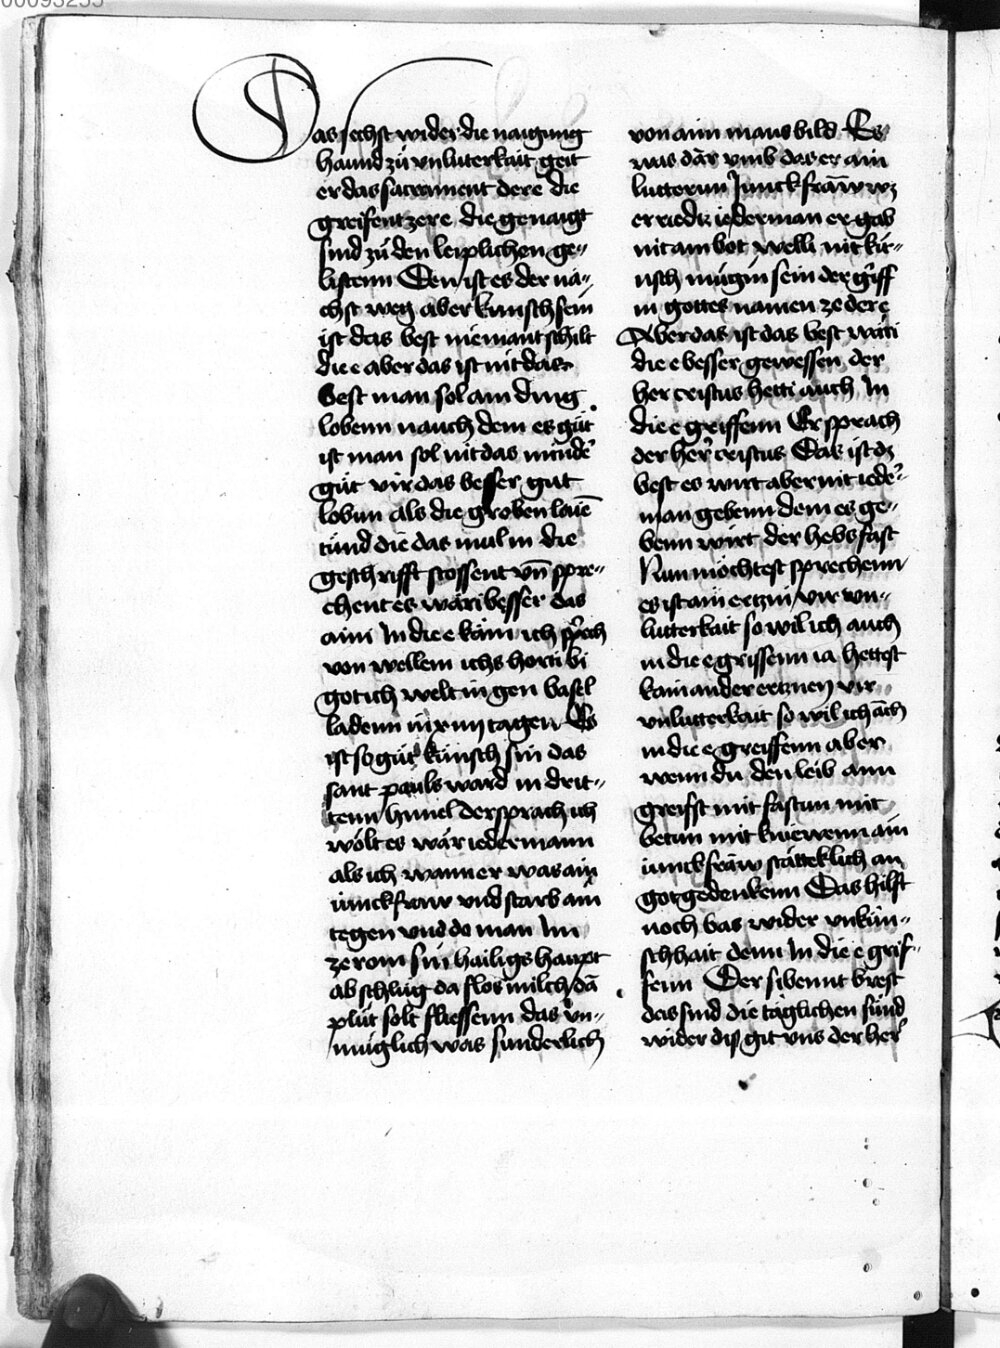 Das sechst wider die naigung
haind zů vnluterkait geit
er das sacrament dere die
greifent zere die genaigt
sind zů den leiplichen ge„
listenn Den ist es der nä„
chst weg aber künsch sein
ist das best niemant schilt
die e aber das ist nit das
best man sol ain ding
lobenn nauch dem es gůt
ist man sol nit das minde
gůt vir das besser gůt
lobun als die groben laüe
tůnd die das mul in die
geschrifft stossent vn̄ spre„
chent es wäri besser das
aini In die e käm ich sprech
von wellem ichs horti bi
got ich welt in gen basel
ladenn in xiiij tagen Es
ist so gůt künsch sin das
sant pauls ward in drit„
tenn himel der sprach ich
wölt es wär iedermann
als ich wann er was ain
iunckfraw vnd starb ain
tegen vnd do man Im
ze rom sin hailigs haupt
ab schlůg da flos milch da
plůt solt fliessenn das vn„
müglich was sunderlich
von aim mans bild Es
was där vmb das er ain
lutterun Junckfräw wz
er riedtz iederman er gab
nit ain bot welli nit kü„
nsch mügin sein der griff
in gottes namen ze der e
Aber das ist das best wäri
die e besser gewessen der
her cristus hetti auch In
die e griffenn Er sprach
der her cristus Das ist dz
best es wirt aber nit iede„
man gebenn dem es ge„
benn wirt der hebs fast
Nun möchtest sprechenn
es ist ain ertzni vir vn„
lutterkait so wil ich auch
in die e grissenn ia hettest
kain ander ertzney vir
vnlutterkait so wil ich äch
in die e greiffenn aber
wenn du den leib ann
greifst mit fastun mit
betun mit kniewenn ain
iunckfräw stätteklich an
got gedenkenn Das hilft
noch bas wider vnkün„
schhait denn In die e grif„
fenn Der sibennt brest
das sind die täglichen sünd
wider dis git vns der her